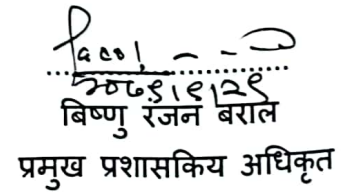 २०७९।९।२९
बिष्णु रंजन बराल
प्रमुख प्रशासकिय अधिकृत